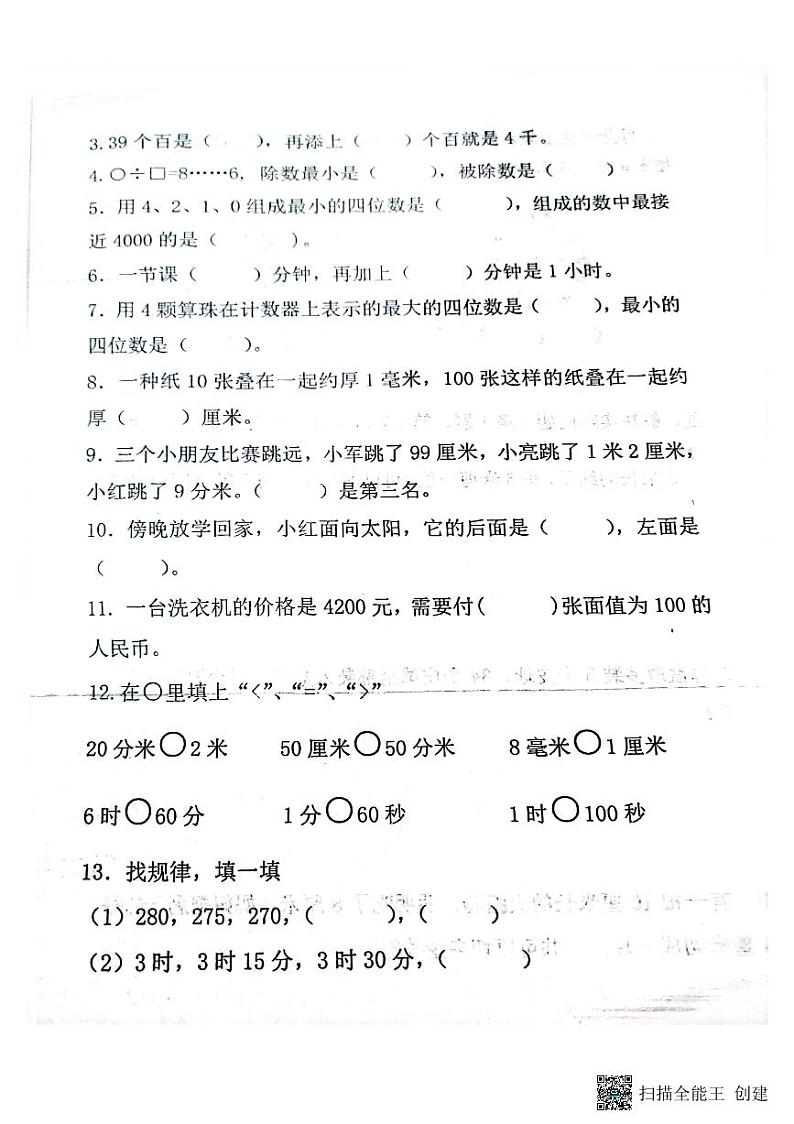 3. 39 个百是（      ），再添上（      ）个百就是 4 千。
4. ○÷□=8……6，除数最小是（      ），被除数是（      ）
5．用 4、2、1、0 组成最小的四位数是（      ），组成的数中最接
近 4000 的是（      ）。
6．一节课（      ）分钟，再加上（      ）分钟是 1 小时。
7．用 4 颗算珠在计数器上表示的最大的四位数是（      ），最小的
四位数是（      ）。
8．一种纸 10 张叠在一起约厚 1 毫米，100 张这样的纸叠在一起约
厚（      ）厘米。
9．三个小朋友比赛跳远，小军跳了 99 厘米，小亮跳了 1 米 2 厘米，
小红跳了 9 分米。（      ）是第三名。
10．傍晚放学回家，小红面向太阳，它的后面是（      ），左面是
（      ）。
11．一台洗衣机的价格是 4200 元，需要付(      )张面值为 100 的
人民币。
12. 在○里填上“<”、“=”、“>”
20 分米○2 米    50 厘米○50 分米    8 毫米○1 厘米
6 时○60 分    1 分○60 秒    1 时○100 秒
13．找规律，填一填
（1）280，275，270，（      ），（      ）
（2）3 时，3 时 15 分，3 时 30 分，（      ）
扫描全能王 创建